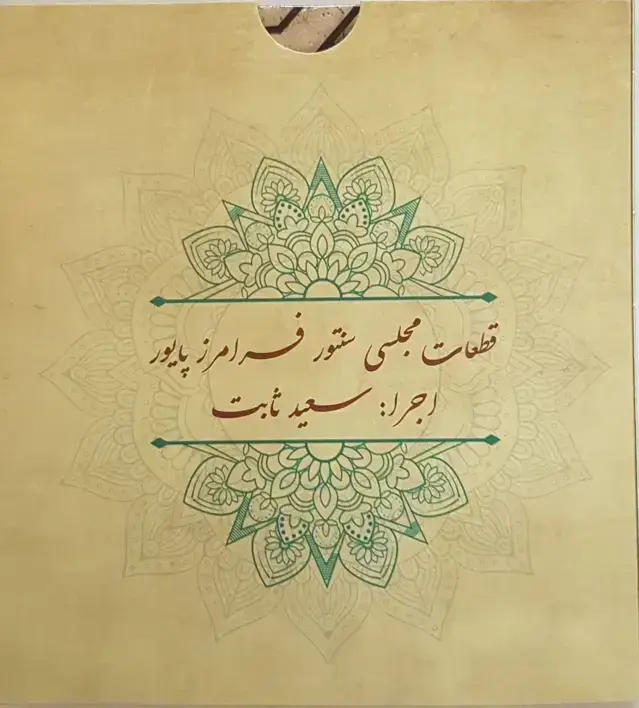 قطعات مجلسی سنتور فرامرز پایور
اجرا: سعید ثابت